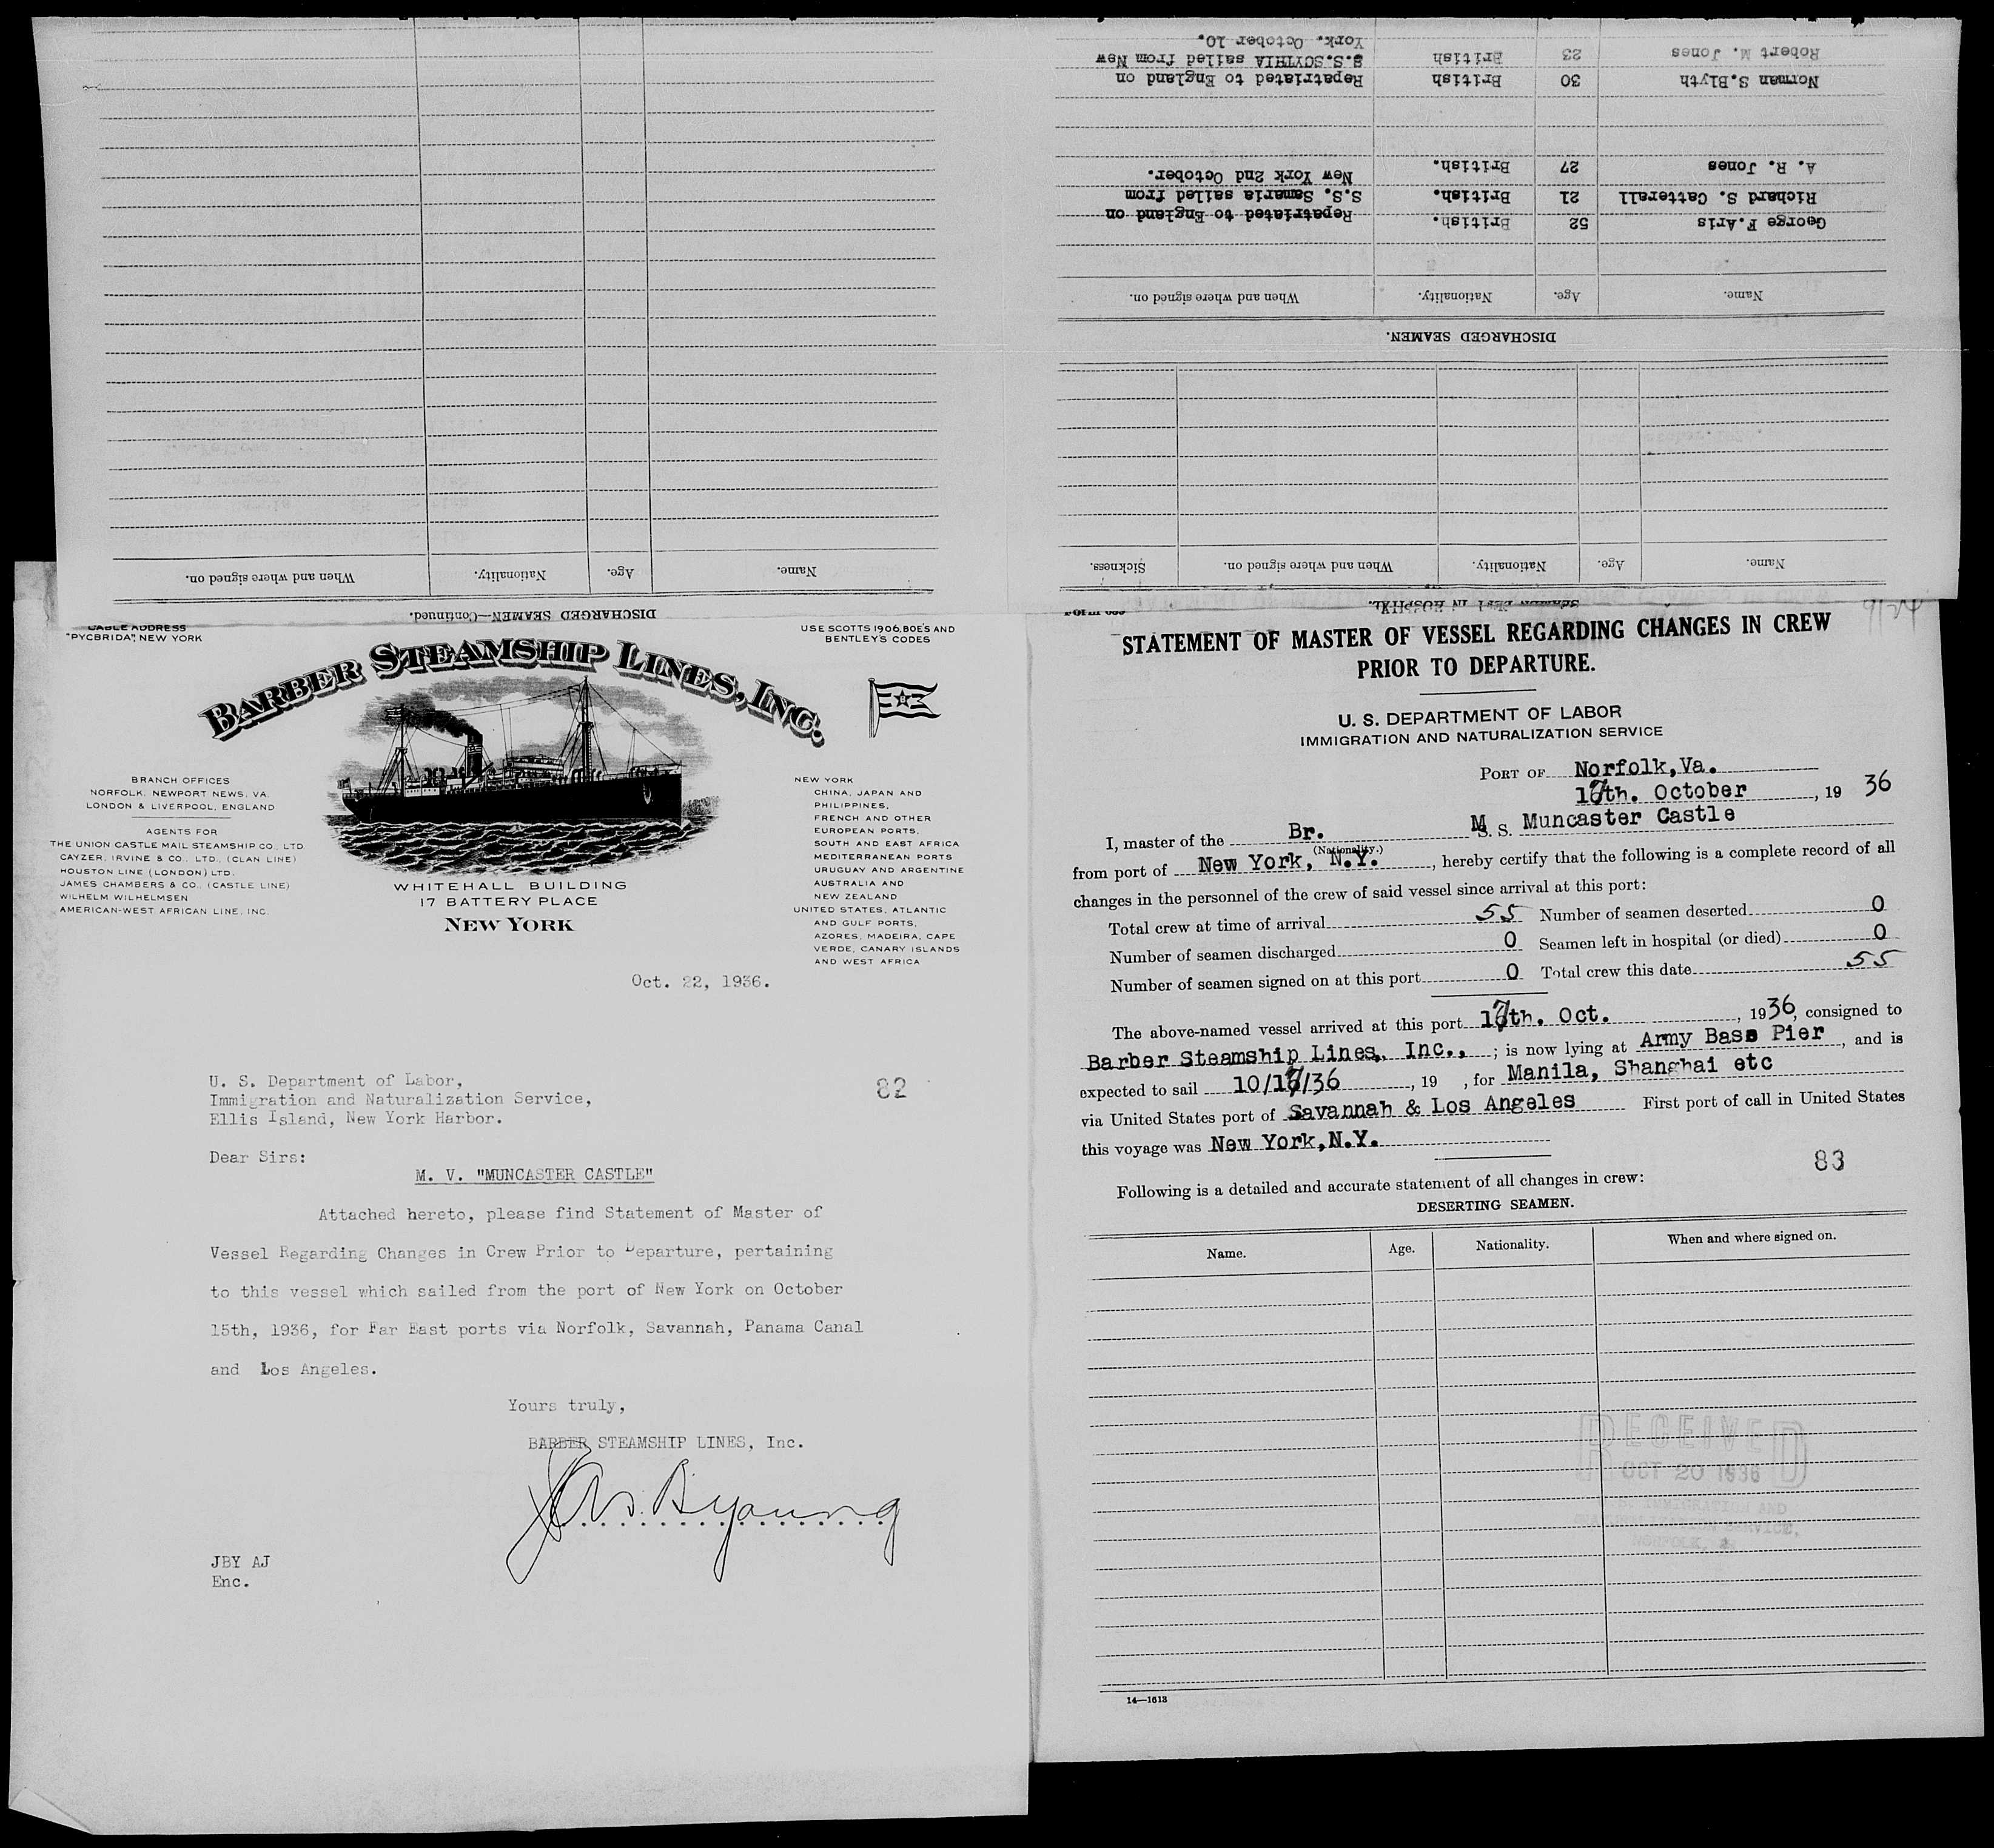 DISCHARGED SEAMEN—Continued.
Name. Age. Nationality. When and where signed on.
SEAMEN LEFT IN HOSPITAL.
Name. Age. Nationality. When and where signed on. Sickness.
DISCHARGED SEAMEN.
Name. Age. Nationality. When and where signed on.
George F.Aris 52 British. Repatriated to England on
Richard S. Catterall 21 British. S.S. Samaria sailed from
A. R. Jones 27 British. New York 2nd October.
Norman S.Blyth 30 British Repatriated to England on
Robert M. Jones 23 British S.S.SCYTHIA sailed from New
York. October 10.
CABLE ADDRESS
"PYCBRIDA", NEW YORK
USE SCOTTS 1906, BOE'S AND
BENTLEY'S CODES
BARBER STEAMSHIP LINES, INC.
BRANCH OFFICES
NORFOLK, NEWPORT NEWS, VA.
LONDON & LIVERPOOL, ENGLAND
AGENTS FOR
THE UNION CASTLE MAIL STEAMSHIP CO., LTD.
CAYZER, IRVINE & CO., LTD., (CLAN LINE)
HOUSTON LINE (LONDON) LTD.
JAMES CHAMBERS & CO., (CASTLE LINE)
WILHELM WILHELMSEN
AMERICAN-WEST AFRICAN LINE, INC.
WHITEHALL BUILDING
17 BATTERY PLACE
NEW YORK
NEW YORK
CHINA, JAPAN AND
PHILIPPINES,
FRENCH AND OTHER
EUROPEAN PORTS,
SOUTH AND EAST AFRICA
MEDITERRANEAN PORTS
URUGUAY AND ARGENTINE
AUSTRALIA AND
NEW ZEALAND
UNITED STATES, ATLANTIC
AND GULF PORTS,
AZORES, MADEIRA, CAPE
VERDE, CANARY ISLANDS
AND WEST AFRICA
Oct. 22, 1936.
U. S. Department of Labor,
Immigration and Naturalization Service,
Ellis Island, New York Harbor.
82
Dear Sirs:
M. V. "MUNCASTER CASTLE"
Attached hereto, please find Statement of Master of
Vessel Regarding Changes in Crew Prior to Departure, pertaining
to this vessel which sailed from the port of New York on October
15th, 1936, for Far East ports via Norfolk, Savannah, Panama Canal
and Los Angeles.
Yours truly,
BARBER STEAMSHIP LINES, Inc.
Jas. B Young
JBY AJ
Enc.
STATEMENT OF MASTER OF VESSEL REGARDING CHANGES IN CREW
PRIOR TO DEPARTURE.
U. S. DEPARTMENT OF LABOR
IMMIGRATION AND NATURALIZATION SERVICE
PORT OF Norfolk,Va.
17th. October, 19 36
I, master of the Br. M S. S. Muncaster Castle
(Nationality.)
from port of New York, N.Y., hereby certify that the following is a complete record of all
changes in the personnel of the crew of said vessel since arrival at this port:
Total crew at time of arrival 55 Number of seamen deserted 0
Number of seamen discharged 0 Seamen left in hospital (or died) 0
Number of seamen signed on at this port 0 Total crew this date 55
The above-named vessel arrived at this port 17th. Oct., 1936, consigned to
Barber Steamship Lines, Inc., ; is now lying at Army Base Pier, and is
expected to sail 10/17/36, 19 , for Manila, Shanghai etc
via United States port of Savannah & Los Angeles First port of call in United States
this voyage was New York,N.Y.
83
Following is a detailed and accurate statement of all changes in crew:
DESERTING SEAMEN.
Name. Age. Nationality. When and where signed on.
RECEIVED
OCT 20 1936
U.S. IMMIGRATION AND
NATURALIZATION SERVICE,
NORFOLK,
14—1613